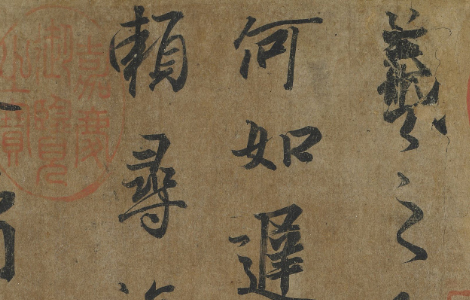 羲之
何如遲
頼尋